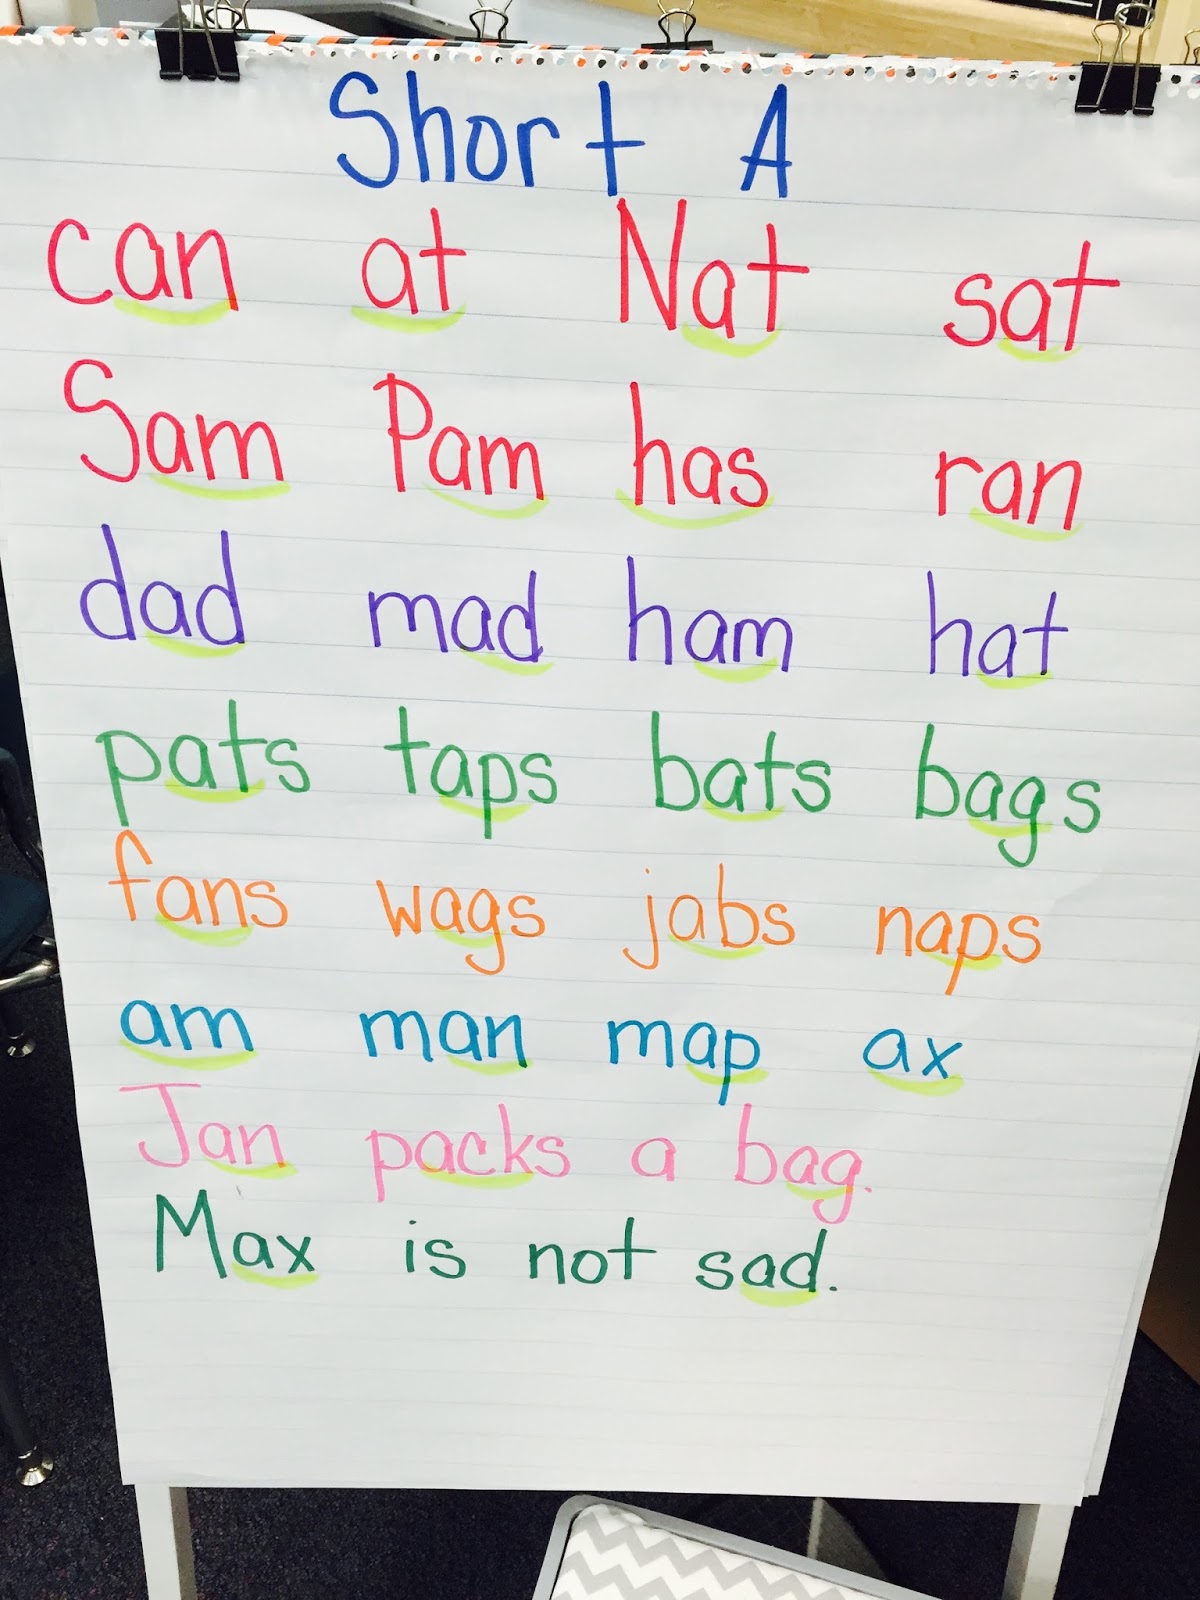 Short A
can at Nat sat
Sam Pam has ran
dad mad ham hat
pats taps bats bags
fans wags jabs naps
am man map ax
Jan packs a bag.
Max is not sad.